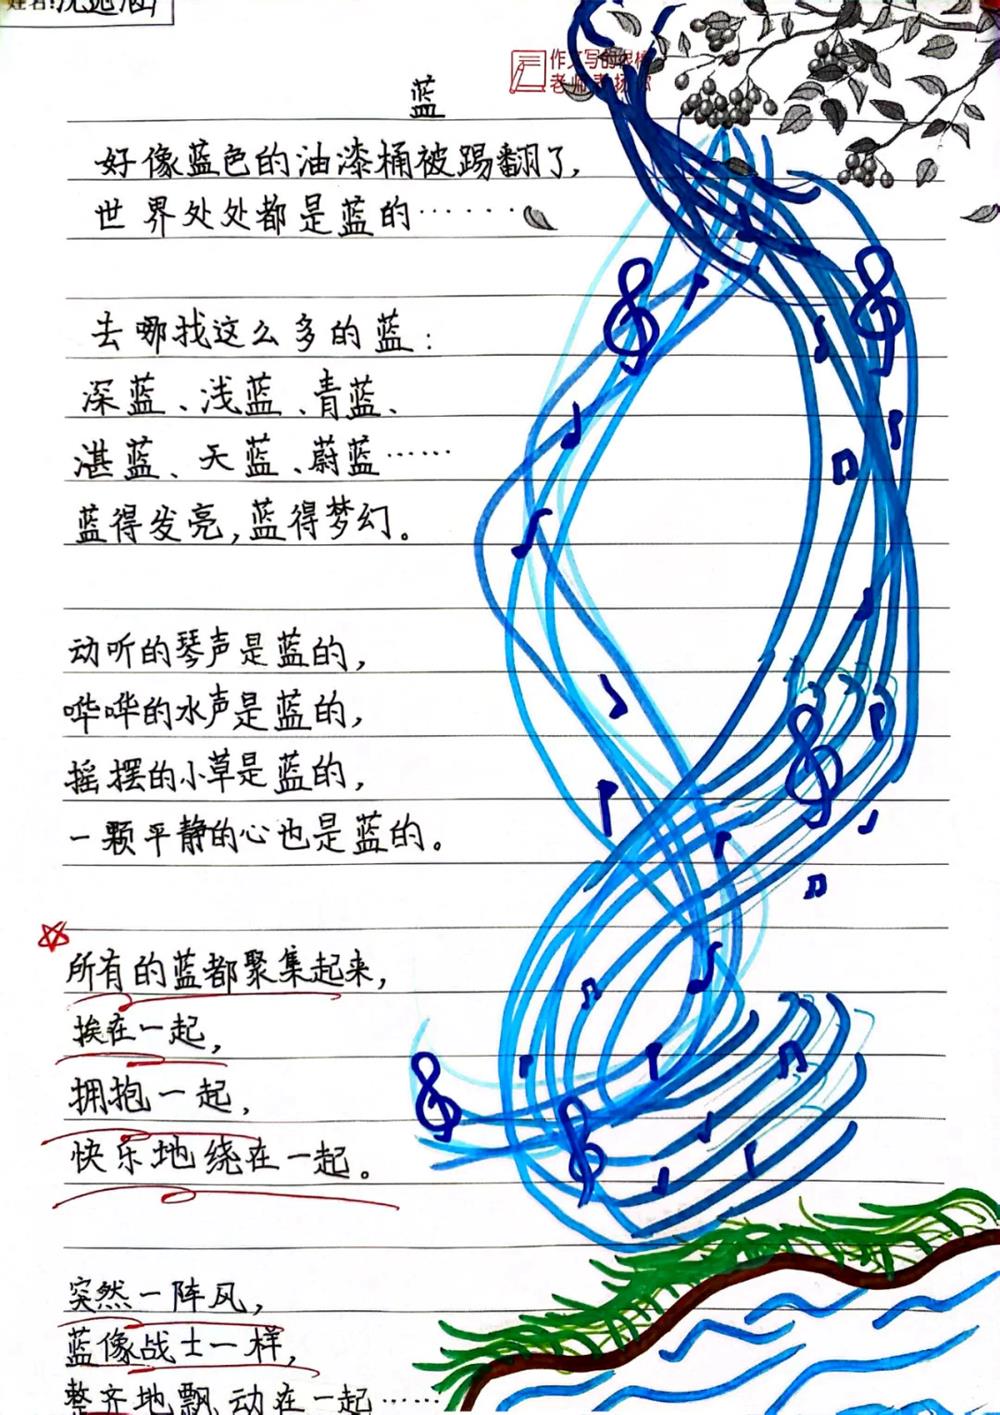 姓名:
作文写的很棒
老师表扬你
蓝
好像蓝色的油漆桶被踢翻了,
世界处处都是蓝的······
去哪找这么多的蓝:
深蓝、浅蓝、青蓝、
湛蓝、天蓝、蔚蓝······
蓝得发亮,蓝得梦幻。
动听的琴声是蓝的,
哗哗的水声是蓝的,
摇摆的小草是蓝的,
一颗平静的心也是蓝的。
所有的蓝都聚集起来,
挨在一起,
拥抱一起,
快乐地绕在一起。
突然一阵风,
蓝像战士一样,
整齐地飘动在一起······